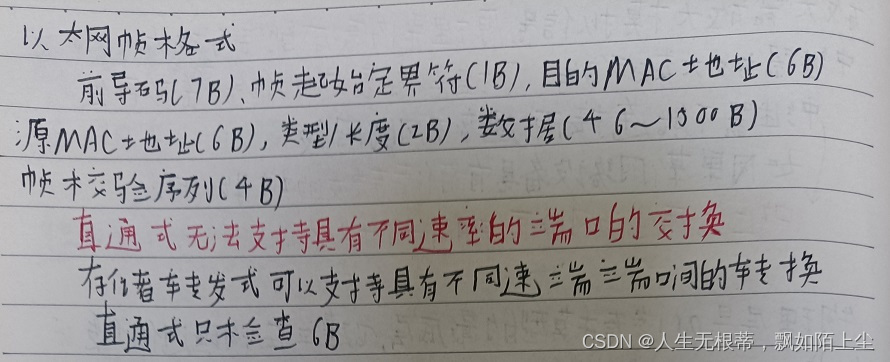 以太网帧格式
前导码(7B)、帧起始定界符(1B),目的MAC地址(6B)
源MAC地址(6B),类型/长度(2B),数据(46～1500B)
帧校验序列(4B)
直通式无法支持具有不同速率的端口的交换
存储转发式可以支持具有不同速端端口间的转换
直通式只检查6B
CSDN @人生无根蒂，飘如陌上尘